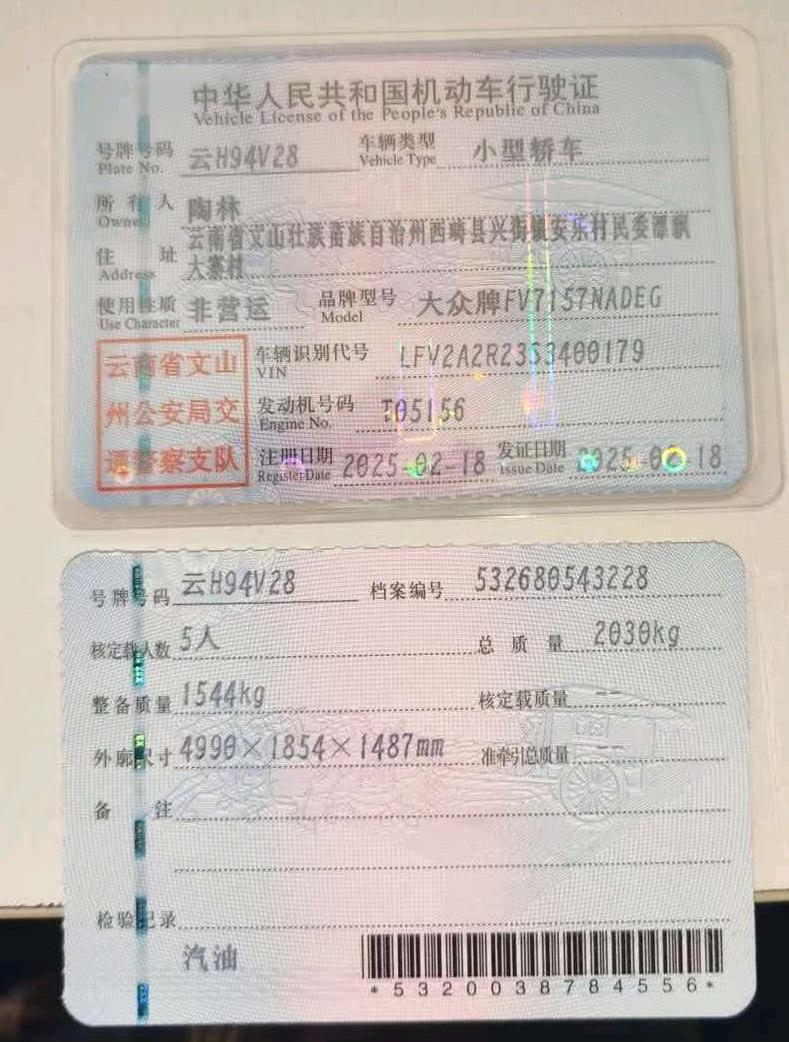 中华人民共和国机动车行驶证
Vehicle License of the People's Republic of China
号牌号码 云H94V28 车辆类型 小型轿车
Plate No. Vehicle Type
所有人 陶林
Owner
住址 云南省文山壮族苗族自治州西畴县兴街镇安乐村民委漂飘
Address 大寨村
使用性质 非营运 品牌型号 大众牌FV7157NADEG
Use Character Model
云南省文山
州公安局交
通警察支队
车辆识别代号 LFV2A2R23S3400179
VIN
发动机号码 T05156
Engine No.
注册日期 2025-02-18 发证日期 2025-02-18
Register Date Issue Date
号牌号码 云H94V28 档案编号 532680543228
核定载人数 5人 总质量 2030kg
整备质量 1544kg 核定载质量 --
外廓尺寸 4990×1854×1487mm 准牵引总质量 --
备注
检验记录
汽油
*5320038784556*